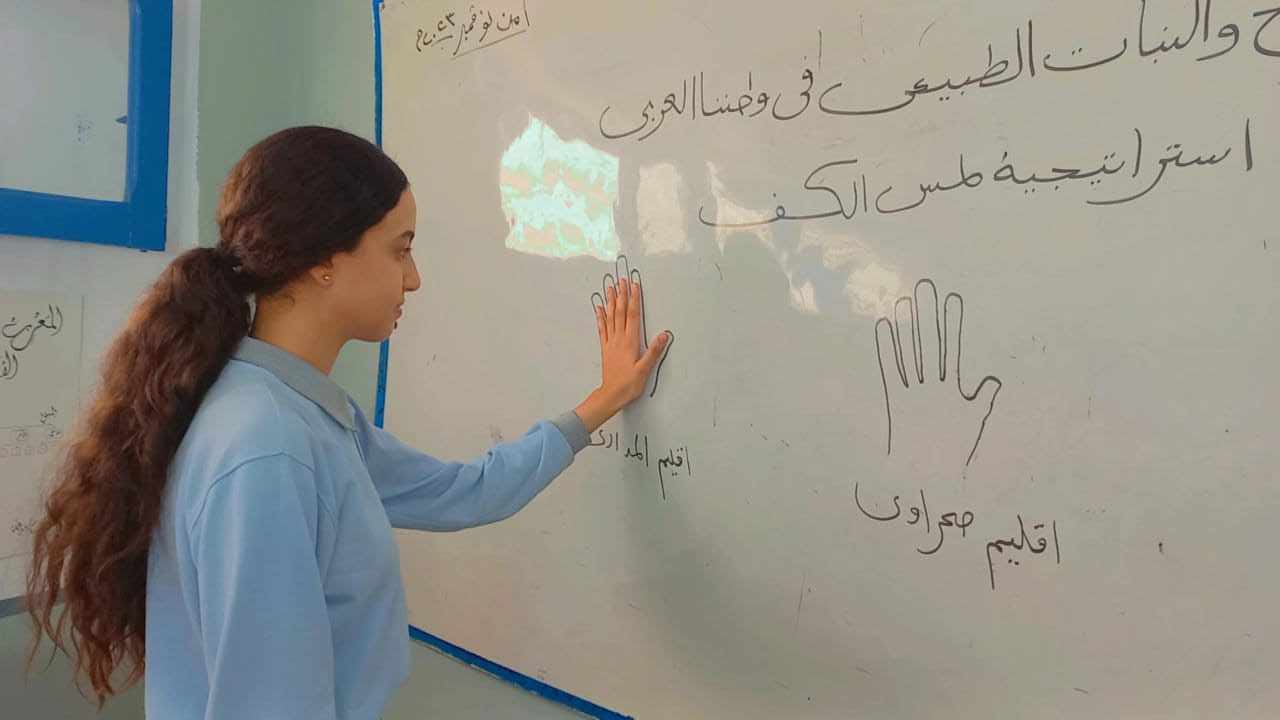 من نوفمبر ٢٠٢٣م
والنبات الطبيعى فى وطننا العربى
استراتيجية لمس الكف
اقليم المدارى
اقليم صحراوى